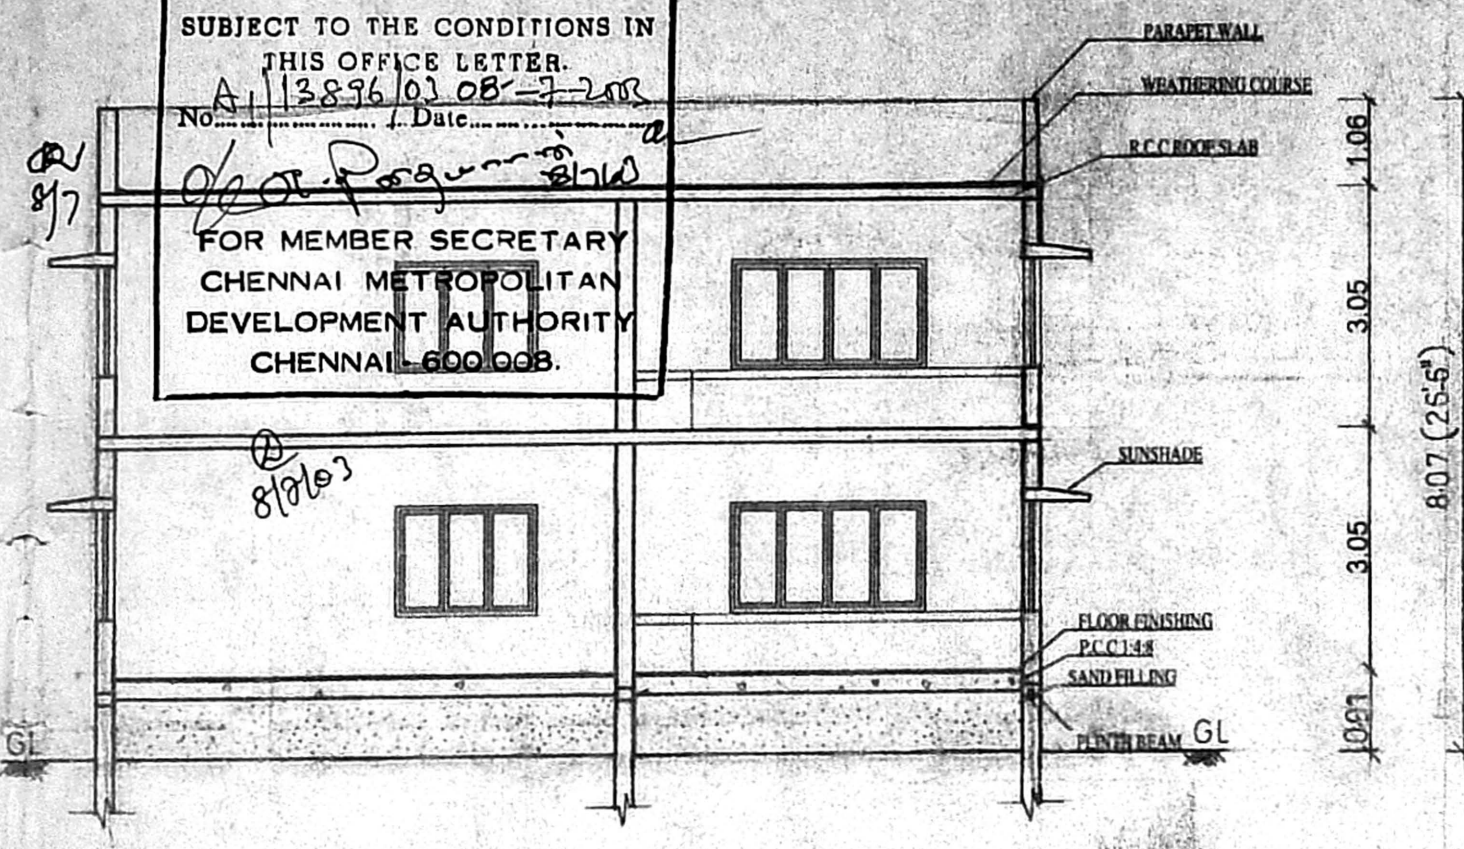 SUBJECT TO THE CONDITIONS IN
THIS OFFICE LETTER.
No. A1/13896/03 Date 08-7-2003
8/7/03
FOR MEMBER SECRETARY
CHENNAI METROPOLITAN
DEVELOPMENT AUTHORITY
CHENNAI-600 008.
8/7
8/7/03
PARAPET WALL
WEATHERING COURSE
R.C.C ROOF SLAB
SUNSHADE
FLOOR FINISHING
P.C.C 1:4:8
SAND FILLING
PLINTH BEAM
GL
GL
1.06
3.05
3.05
0.91
8.07 (26'-6")